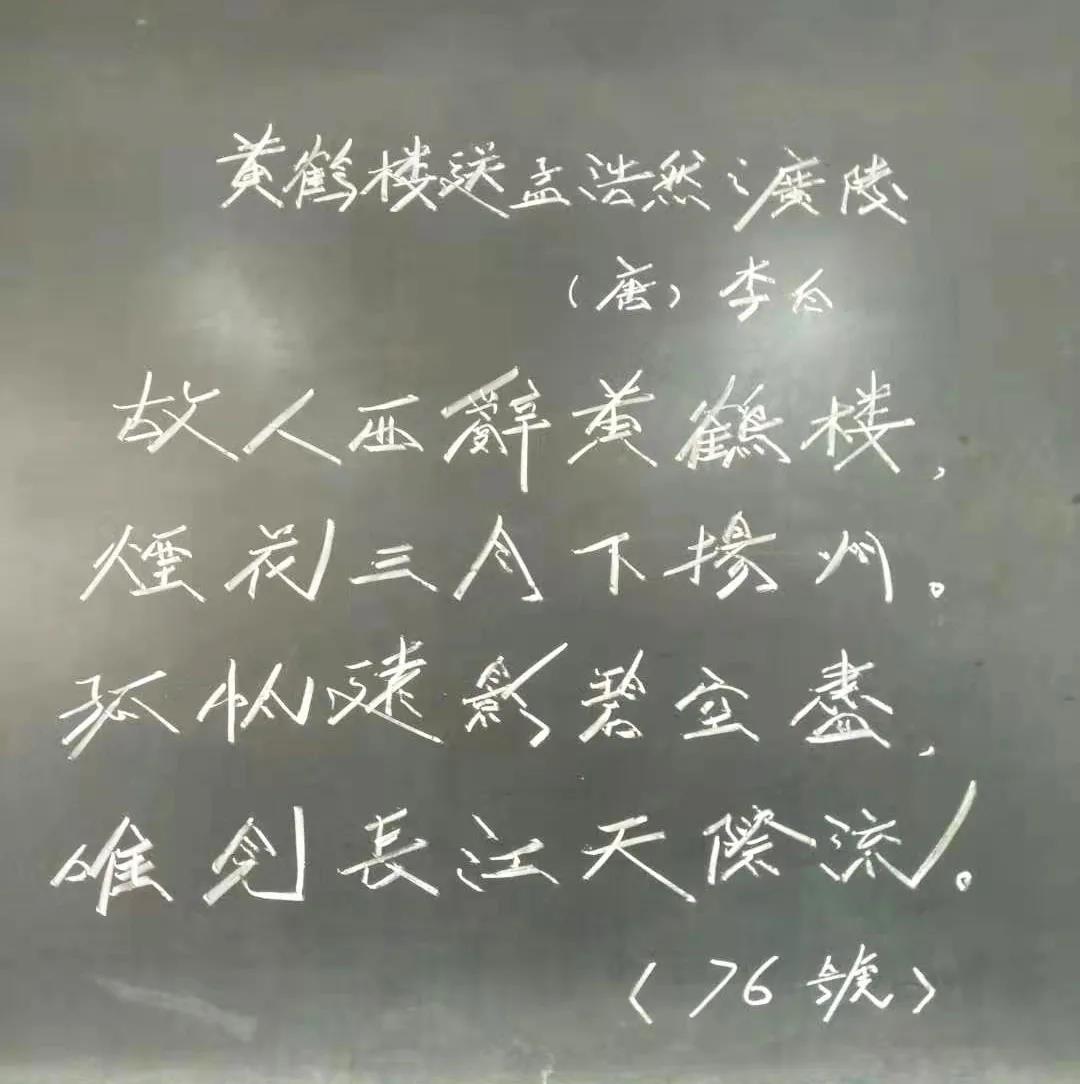 黄鹤楼送孟浩然之廣陵
（唐）李白
故人西辭黄鶴楼，
煙花三月下揚州。
孤帆遠影碧空盡，
唯見長江天際流。
〈76號〉